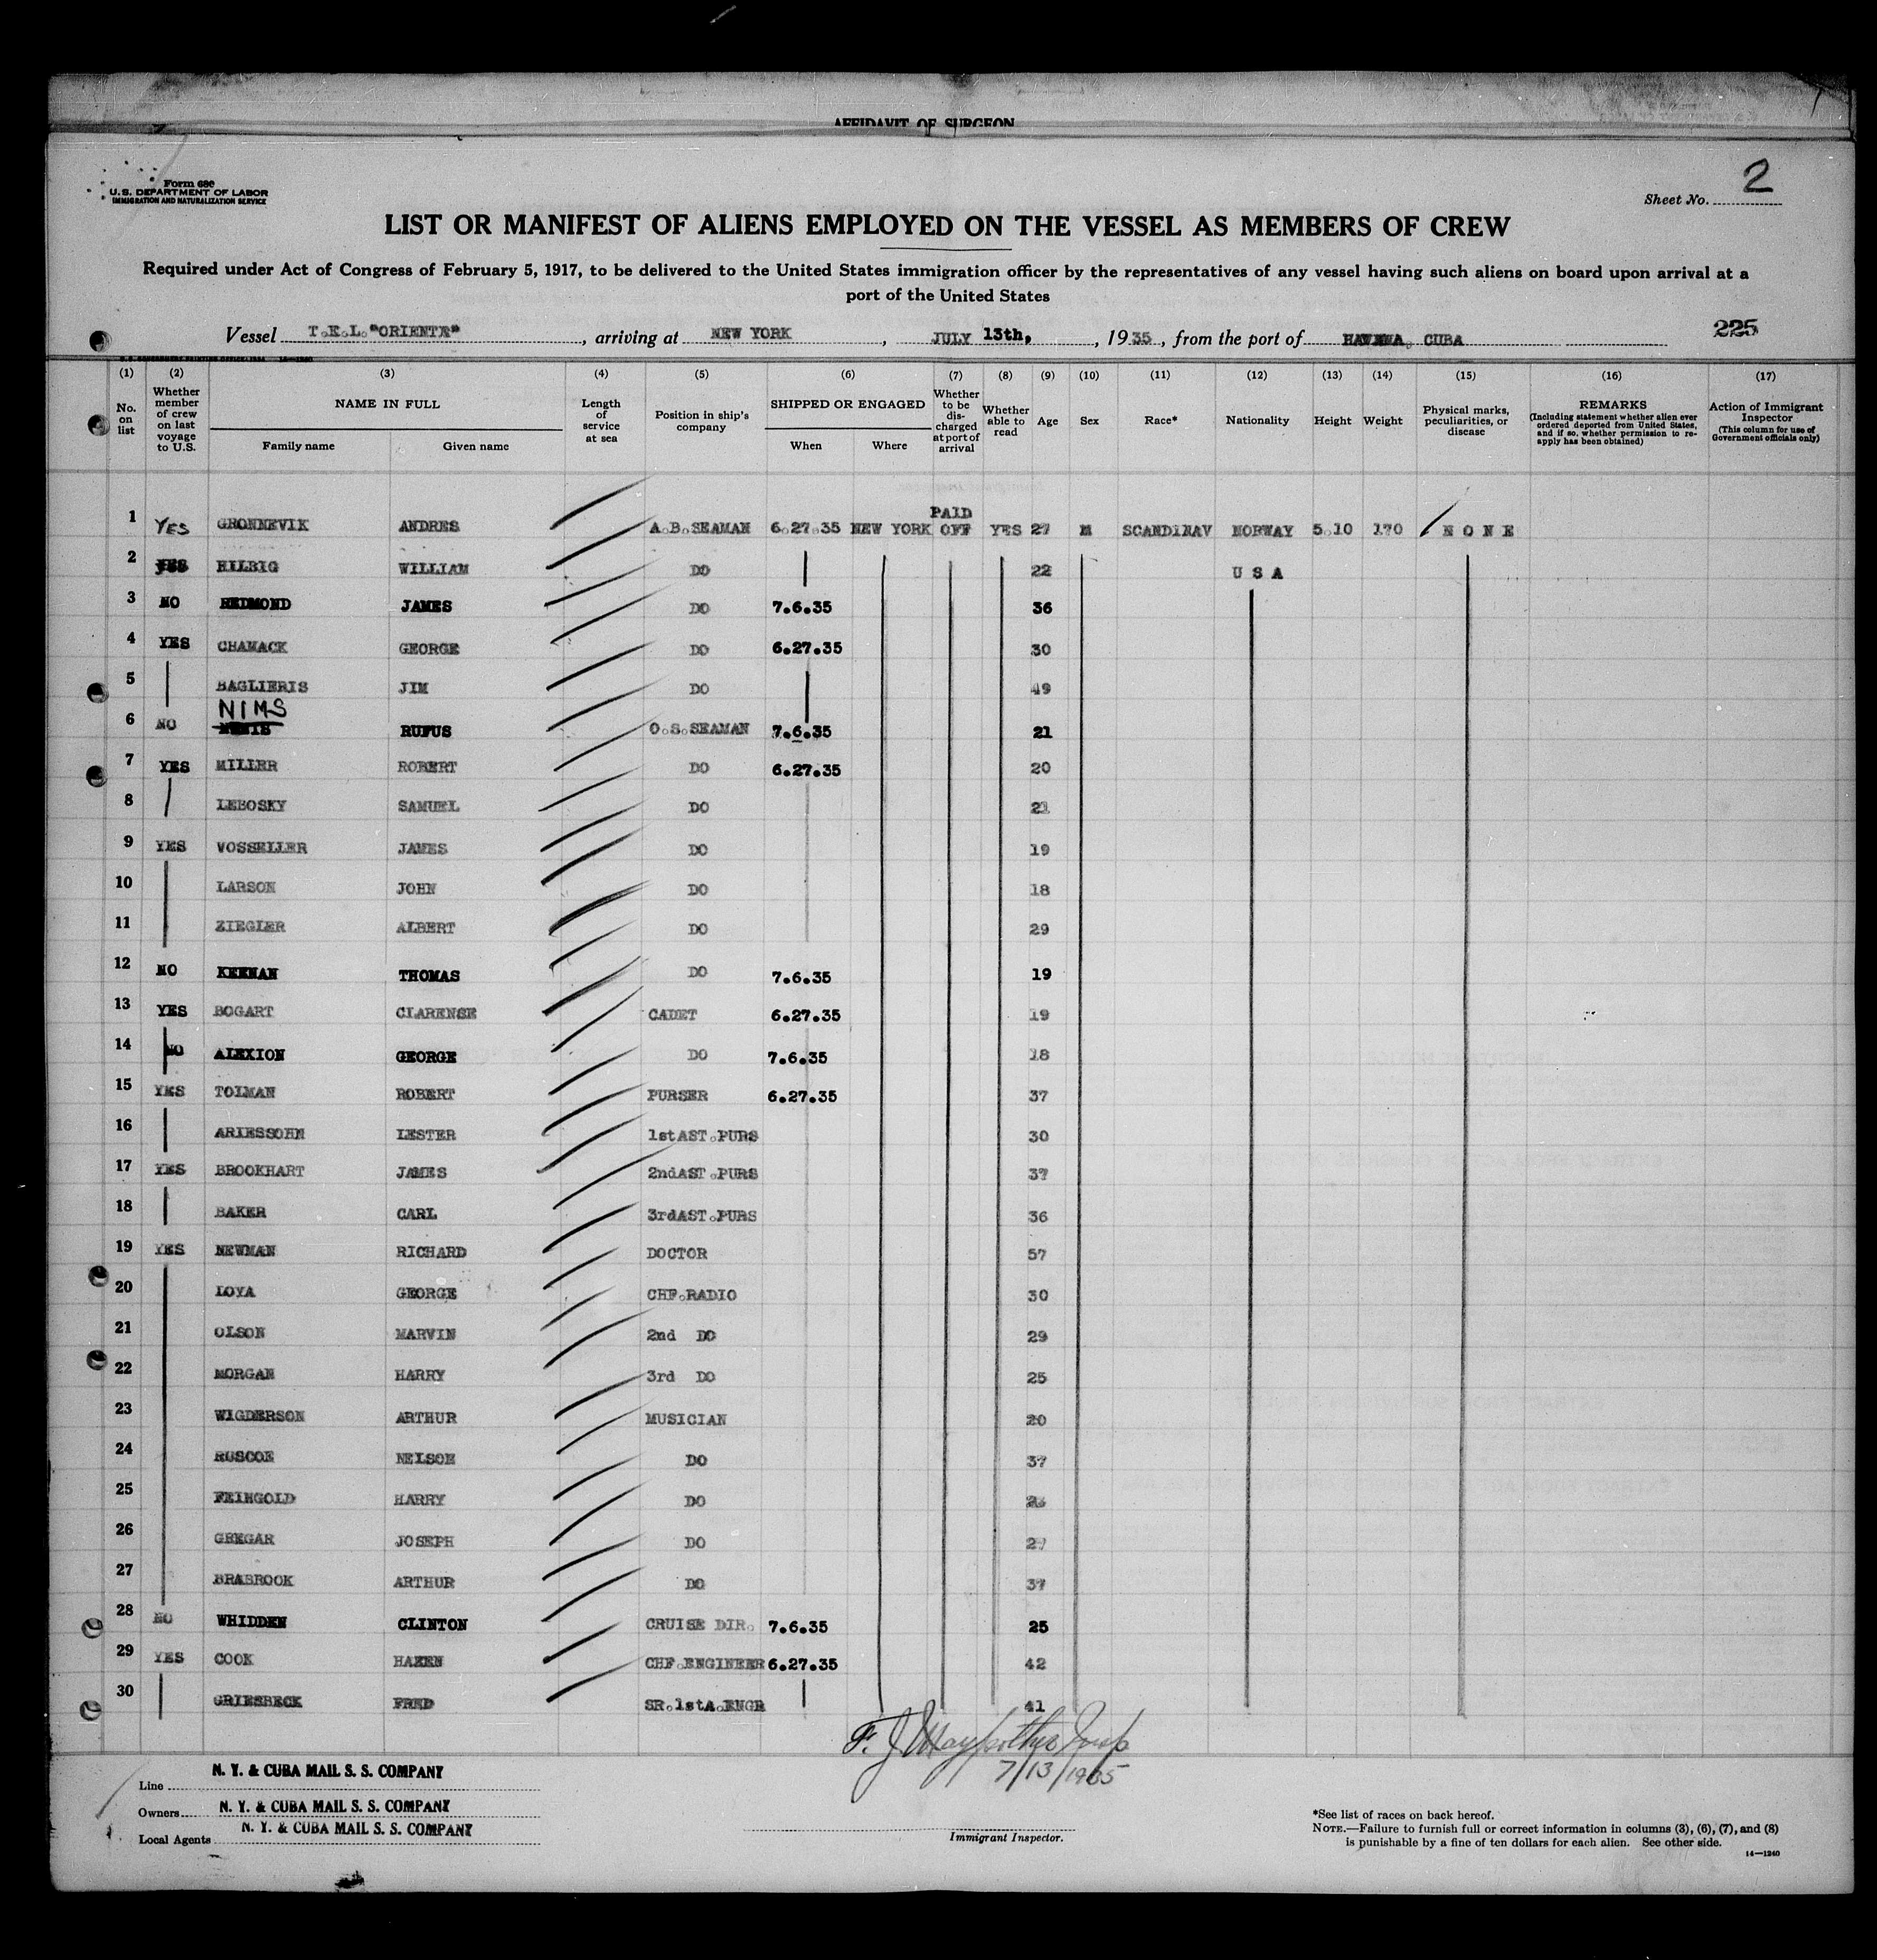 AFFIDAVIT OF SURGEON
Form 680
U. S. DEPARTMENT OF LABOR
IMMIGRATION AND NATURALIZATION SERVICE
Sheet No. 2
LIST OR MANIFEST OF ALIENS EMPLOYED ON THE VESSEL AS MEMBERS OF CREW
Required under Act of Congress of February 5, 1917, to be delivered to the United States immigration officer by the representatives of any vessel having such aliens on board upon arrival at a
port of the United States
Vessel T.E.L. "ORIENTE", arriving at NEW YORK, JULY 13th, 1935, from the port of HAVANA, CUBA 225
(1) (2) (3) (4) (5) (6) (7) (8) (9) (10) (11) (12) (13) (14) (15) (16) (17)
No. on list
Whether member of crew on last voyage to U.S.
NAME IN FULL
Family name Given name
Length of service at sea
Position in ship's company
SHIPPED OR ENGAGED
When Where
Whether to be discharged at port of arrival
Whether able to read
Age
Sex
Race*
Nationality
Height
Weight
Physical marks, peculiarities, or disease
REMARKS
(Including statement whether alien ever ordered deported from United States, and if so, whether permission to reapply has been obtained)
Action of Immigrant Inspector
(This column for use of Government officials only)
1 YES GRONNEVIK ANDRES A.B.SEAMAN 6.27.35 NEW YORK PAID OFF YES 27 M SCANDINAV NORWAY 5.10 170 NONE
2 YES HILBIG WILLIAM DO 22 U S A
3 NO REDMOND JAMES DO 7.6.35 36
4 YES CHAMACK GEORGE DO 6.27.35 30
5 BAGLIERIS JIM DO 49
6 NO NIMS RUFUS O.S.SEAMAN 7.6.35 21
7 YES MILLER ROBERT DO 6.27.35 20
8 LEBOSKY SAMUEL DO 21
9 YES VOSSELLER JAMES DO 19
10 LARSON JOHN DO 18
11 ZIEGLER ALBERT DO 29
12 NO KEENAN THOMAS DO 7.6.35 19
13 YES BOGART CLARENSE CADET 6.27.35 19
14 NO ALEXION GEORGE DO 7.6.35 18
15 YES TOLMAN ROBERT PURSER 6.27.35 37
16 ARIESSOHN LESTER 1stAST.PURS 30
17 YES BROOKHART JAMES 2ndAST.PURS 37
18 BAKER CARL 3rdAST.PURS 36
19 YES NEWMAN RICHARD DOCTOR 57
20 LOYA GEORGE CHF.RADIO 30
21 OLSON MARVIN 2nd DO 29
22 MORGAN HARRY 3rd DO 25
23 WIGDERSON ARTHUR MUSICIAN 20
24 ROSCOE NELSON DO 37
25 FEINGOLD HARRY DO
26 GREGAR JOSEPH DO 27
27 BRABROOK ARTHUR DO 37
28 NO WHIDDEN CLINTON CRUISE DIR. 7.6.35 25
29 YES COOK HAZEN CHF.ENGINEER 6.27.35 42
30 GRIESBECK FRED SR.1stA.ENGR 41
7/13/1935
Line N. Y. & CUBA MAIL S. S. COMPANY
Owners N. Y. & CUBA MAIL S. S. COMPANY
Local Agents N. Y. & CUBA MAIL S. S. COMPANY
Immigrant Inspector.
*See list of races on back hereof.
NOTE.—Failure to furnish full or correct information in columns (3), (6), (7), and (8)
is punishable by a fine of ten dollars for each alien. See other side.
14—1240